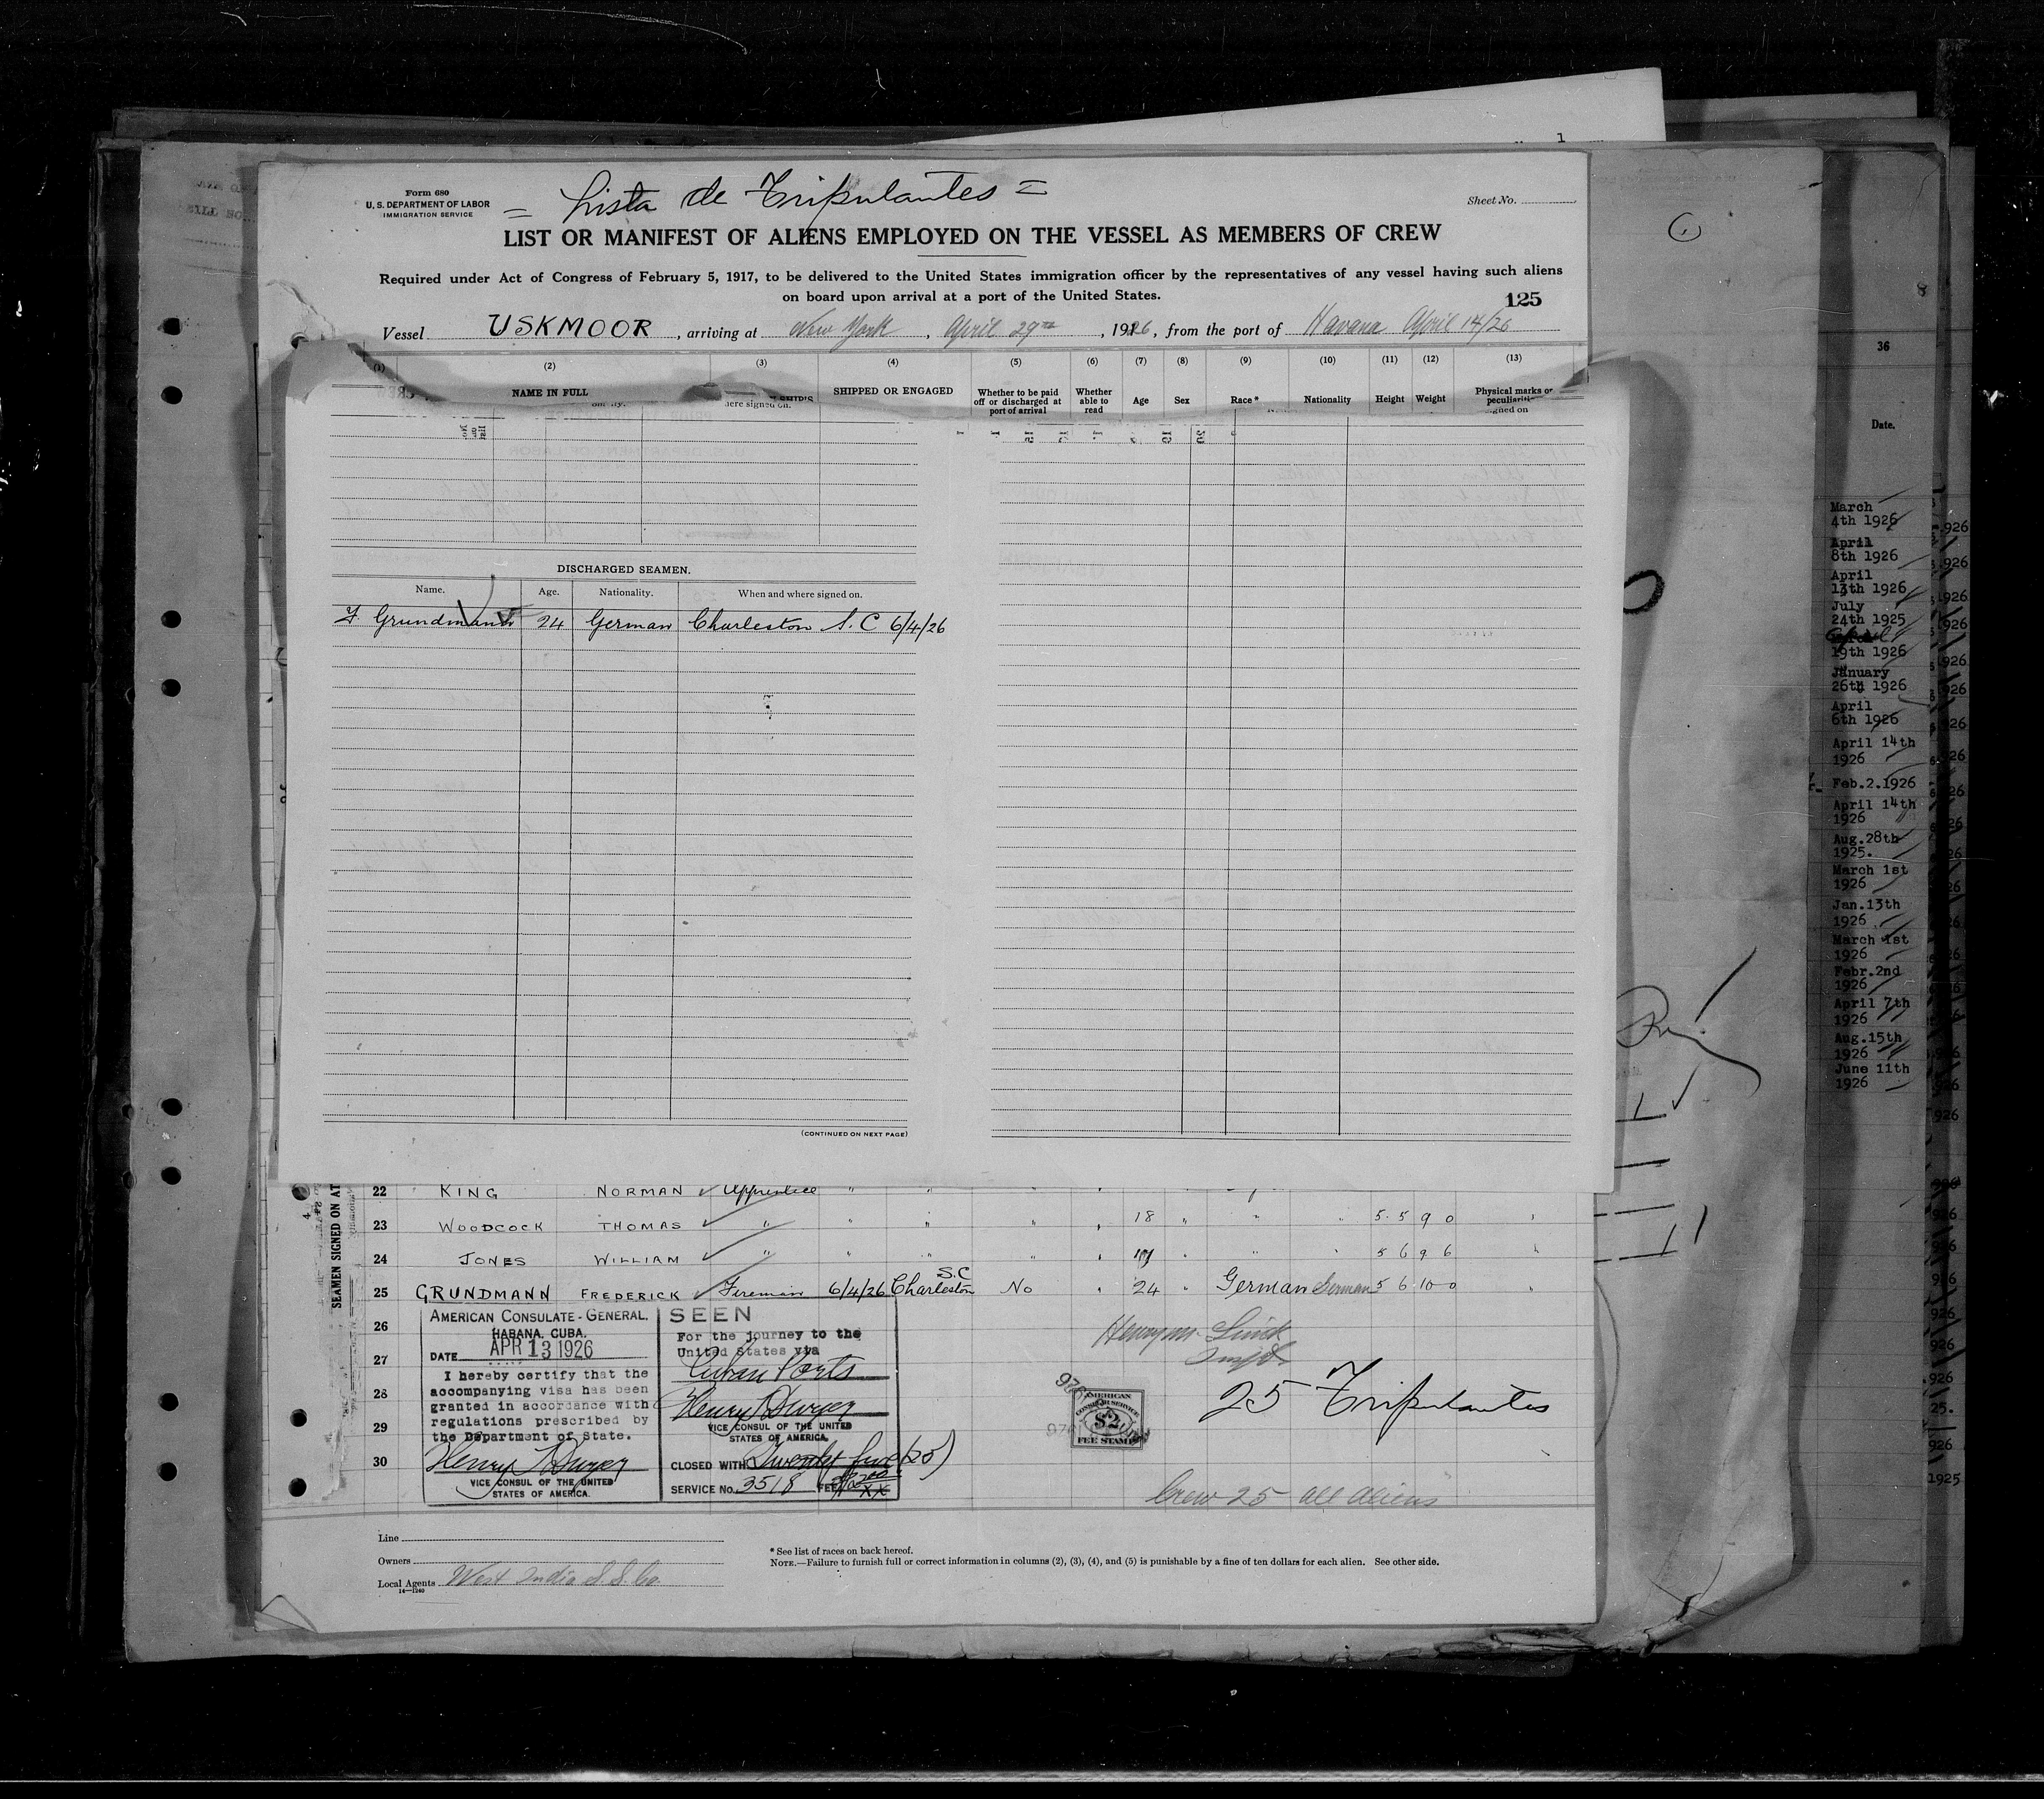 Form 680
U. S. DEPARTMENT OF LABOR
IMMIGRATION SERVICE
= Lista de Tripulantes =
Sheet No.
LIST OR MANIFEST OF ALIENS EMPLOYED ON THE VESSEL AS MEMBERS OF CREW
Required under Act of Congress of February 5, 1917, to be delivered to the United States immigration officer by the representatives of any vessel having such aliens
on board upon arrival at a port of the United States.
125
Vessel USKMOOR, arriving at New York, April 29th, 1926, from the port of Havana April 14/26
(1) (2) (3) (4) (5) (6) (7) (8) (9) (10) (11) (12) (13)
NAME IN FULL
SHIPPED OR ENGAGED
Whether to be paid off or discharged at port of arrival
Whether able to read
Age
Sex
Race*
Nationality
Height
Weight
Physical marks or
signed on.
signed on
DISCHARGED SEAMEN.
Name. Age. Nationality. When and where signed on.
F. Grundmann 24 German Charleston S.C 6/4/26
(CONTINUED ON NEXT PAGE)
SEAMEN SIGNED ON AT
22 KING NORMAN Apprentice " "
23 WOODCOCK THOMAS " " " " 18 " " " 5.5 90
24 JONES WILLIAM " " " " " " " 5 6 96
25 GRUNDMANN FREDERICK Fireman 6/4/26 Charleston S.C No " 24 " German German 5 6 100
26
27
28
29
30
AMERICAN CONSULATE-GENERAL.
HABANA, CUBA.
DATE APR 13 1926
I hereby certify that the
accompanying visa has been
granted in accordance with
regulations prescribed by
the Department of State.
Henry T Dwyer
VICE CONSUL OF THE UNITED
STATES OF AMERICA.
SEEN
For the journey to the
United States via
Cuban Ports
Henry T Dwyer
VICE CONSUL OF THE UNITED
STATES OF AMERICA.
CLOSED WITH Twenty five (25)
SERVICE No. 3518 FEE
AMERICAN
CONSULAR SERVICE
$2
FEE STAMP
25 Tripulantes
Crew 25 all aliens
Line
Owners
Local Agents West India S.S. Co.
14—1240
* See list of races on back hereof.
NOTE.—Failure to furnish full or correct information in columns (2), (3), (4), and (5) is punishable by a fine of ten dollars for each alien. See other side.
36
Date.
March
4th 1926
April
8th 1926
April
13th 1926
July
24th 1925
April
19th 1926
January
26th 1926
April
6th 1926
April 14th
1926
Feb.2.1926
April 14th
1926
Aug.28th
1925.
March 1st
1926
Jan.13th
1926
March 1st
1926
Febr.2nd
1926
April 7th
1926
Aug.15th
1926
June 11th
1926